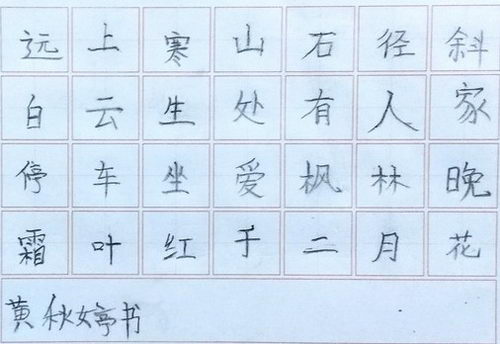 远上寒山石径斜
白云生处有人家
停车坐爱枫林晚
霜叶红于二月花
黄秋婷书